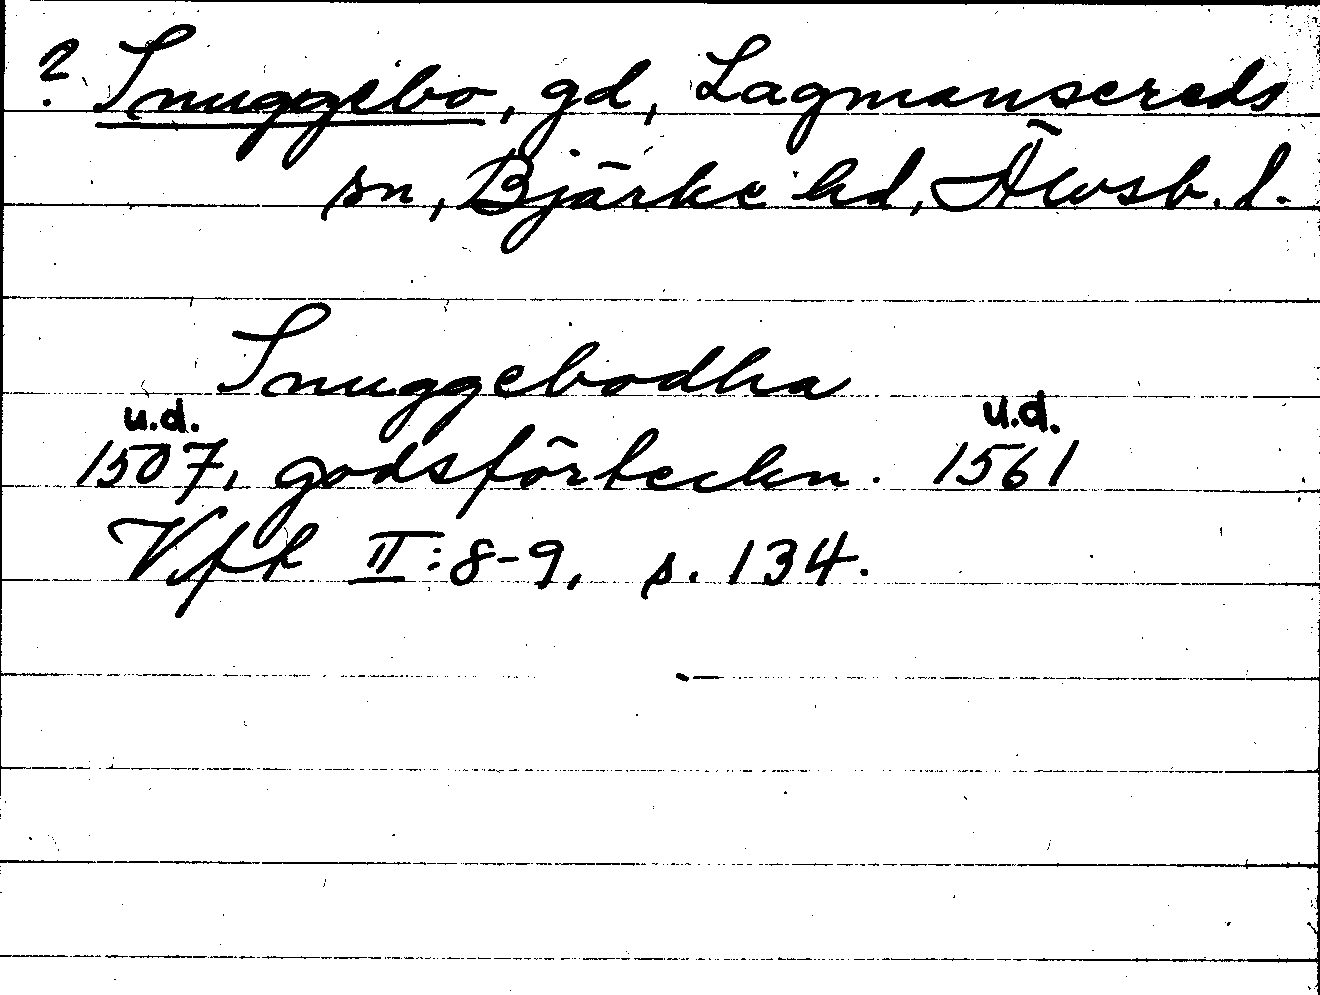 ? Snuggebo, gd, Lagmansereds
sn, Bjärke hd, Älvsb. l.
Snuggebodha
u.d. u.d.
1507, godsförteckn. 1561
Vfk II:8-9, s. 134.